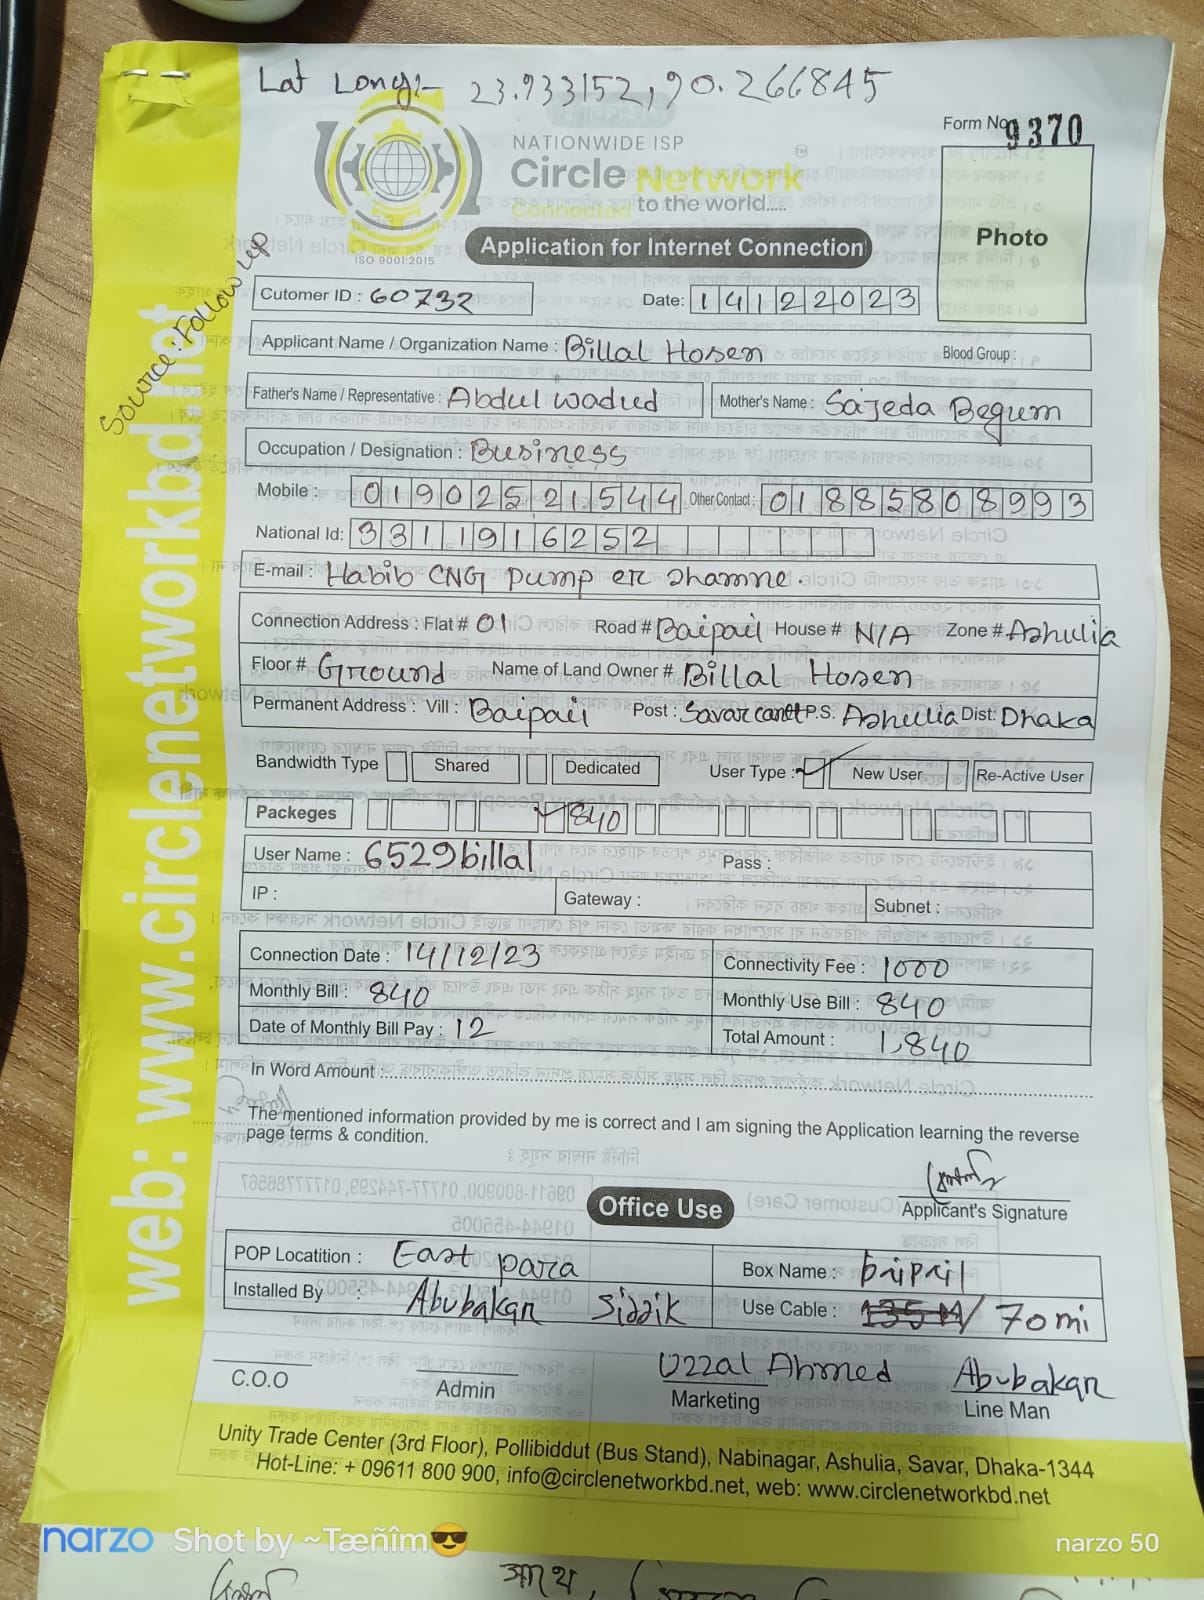 Lat Long:- 23.933152, 90.266845
Form No. 9370
NATIONWIDE ISP
Circle Network TM
Connected to the world.....
ISO 9001:2015
Application for Internet Connection
Photo
Source: Follow up
Cutomer ID : 60732
Date: 14122023
Applicant Name / Organization Name : Billal Hosen
Blood Group :
Father's Name / Representative : Abdul wadud
Mother's Name : Sajeda Begum
Occupation / Designation : Business
Mobile : 01902521544 Other Contact : 01885808993
National Id: 3311916252
E-mail : Habib CNG pump er shamne.
Connection Address : Flat # 01 Road # Baipail House # N/A Zone # Ashulia
Floor # Ground Name of Land Owner # Billal Hosen
Permanent Address : Vill : Baipail Post : Savar cantt P.S. Ashulia Dist: Dhaka
Bandwidth Type Shared Dedicated User Type : New User Re-Active User
Packeges 840
User Name : 6529billal Pass :
IP : Gateway : Subnet :
Connection Date : 14/12/23 Connectivity Fee : 1000
Monthly Bill : 840 Monthly Use Bill : 840
Date of Monthly Bill Pay : 12 Total Amount : 1,840
In Word Amount :
The mentioned information provided by me is correct and I am signing the Application learning the reverse
page terms & condition.
Applicant's Signature
Office Use
POP Locatition : East para Box Name : baipail
Installed By : Abubakar Siddik Use Cable : 135 M / 70 mi
Uzzal Ahmed Abubakar
C.O.O Admin Marketing Line Man
Unity Trade Center (3rd Floor), Pollibiddut (Bus Stand), Nabinagar, Ashulia, Savar, Dhaka-1344
Hot-Line: + 09611 800 900, info@circlenetworkbd.net, web: www.circlenetworkbd.net
web: www.circlenetworkbd.net
narzo Shot by ~Tæñîm😎 narzo 50